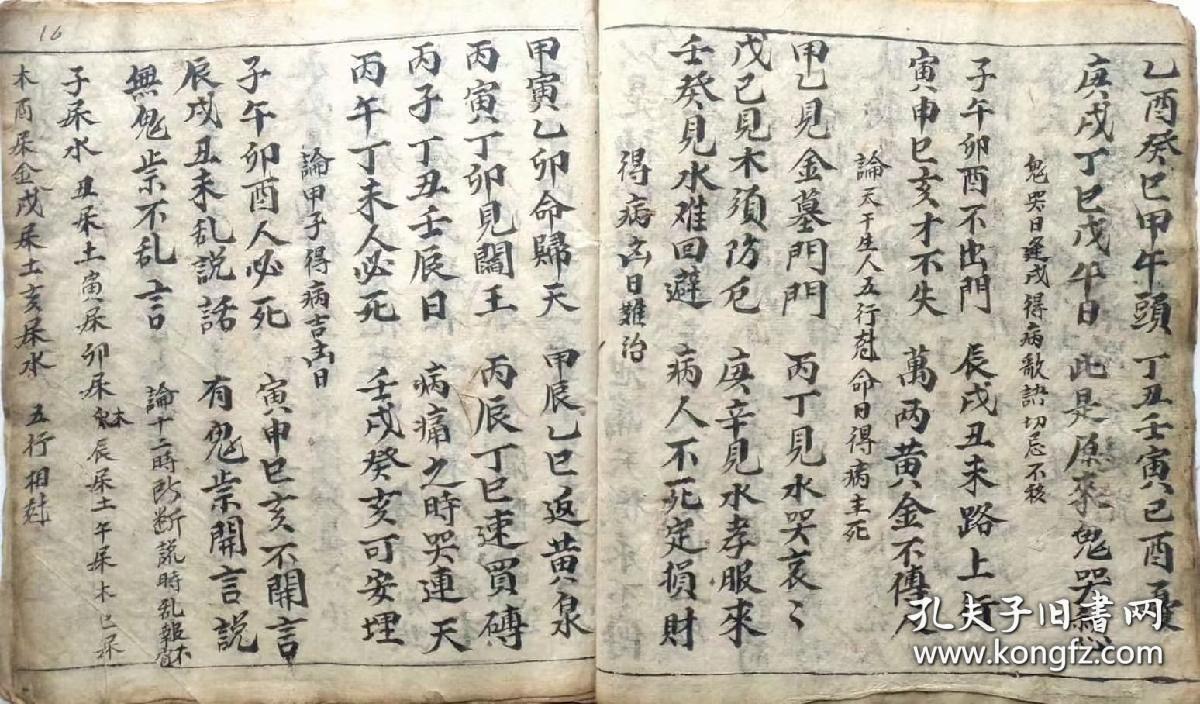 乙酉癸巳甲午頭　丁丑壬寅己酉
庚戌丁巳戊午日　此是原來鬼哭
鬼哭日逢戌得病歌訣切忌不
子午卯酉不出門　辰戌丑未路上行
寅申巳亥才不失　萬両黄金不傳人
論天干生人五行尅命日得病主死
甲乙見金墓門門　丙丁見水哭哀〻
戊己見木須防厄　庚辛見水孝服來
壬癸見水难回避　病人不死定損財
得病凶日难治
甲寅乙卯命歸天　甲辰乙巳返黄泉
丙寅丁卯見閻王　丙辰丁巳速買磚
丙子丁丑壬辰日　病痛之時哭連天
丙午丁未人必死　壬戌癸亥可安埋
論甲子得病吉凶日
子午卯酉人必死　寅申巳亥不開言
辰戌丑未乱説話　有鬼祟開言説
無鬼祟不乱言　論十二時断謊時乱報
子屎水　丑屎土寅屎卯屎木辰屎土午屎木巳屎
木酉屎金戌屎土亥屎水　五行相尅
16
孔夫子旧書网
www.kongfz.com